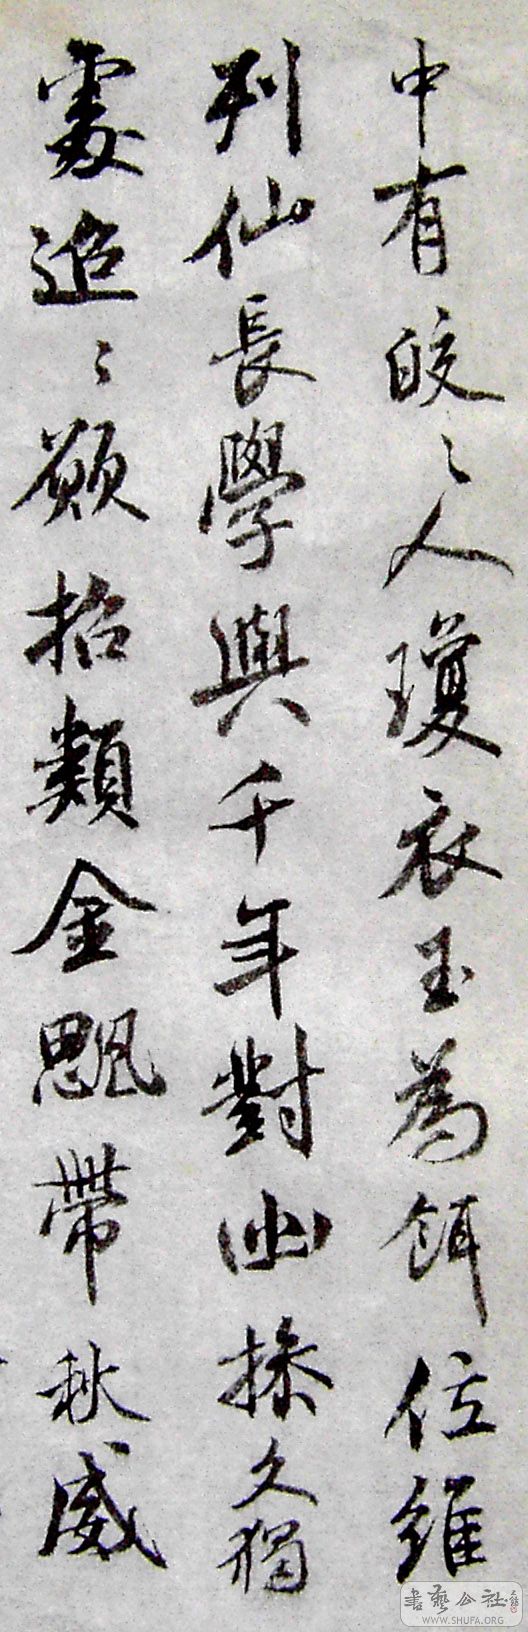 中有皎〻人瓊衣玉為餌位維
列仙長學與千年對幽操久獨
處迢〻願招類金颸帶秋威
書藝公社
WWW.SHUFA.ORG